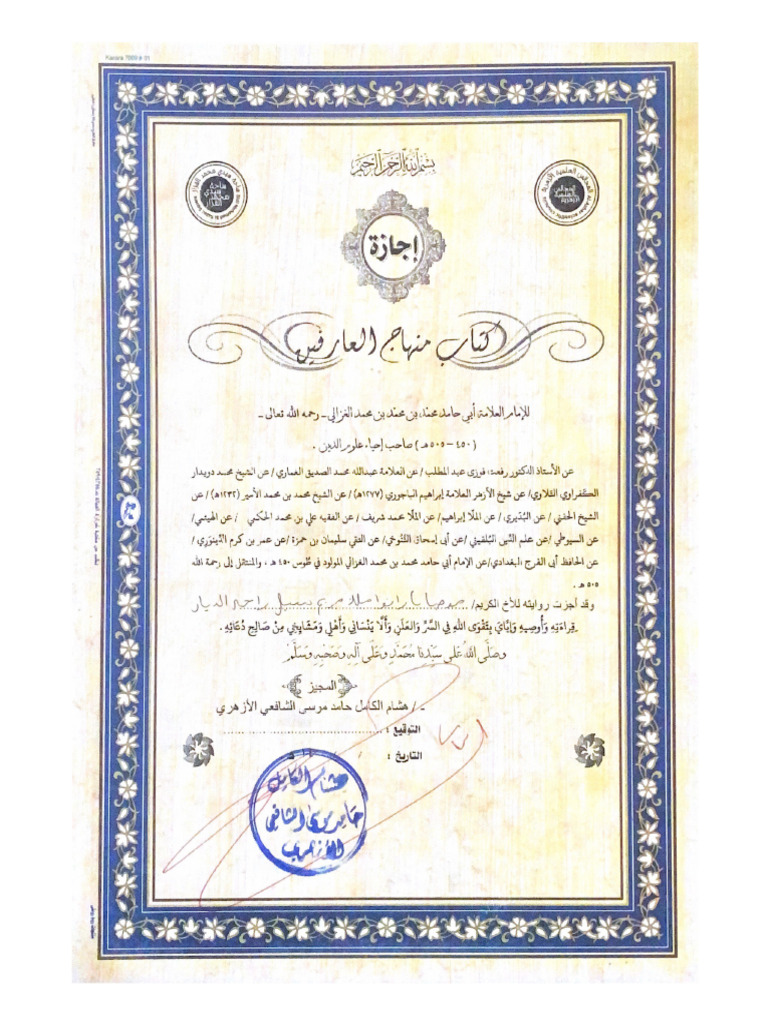 بسم الله الرحمن الرحيم
إجازة
كتاب منهاج العارفين
للإمام العلامة أبي حامد محمد بن محمد بن محمد الغزالي - رحمه الله تعالى -
(٤٥٠ - ٥٠٥ هـ) صاحب إحياء علوم الدين .
عن الأستاذ الدكتور رفعت فوزي عبد المطلب / عن العلامة عبدالله محمد الصديق الغماري / عن الشيخ محمد دويدار
الكفراوي التلاوي / عن شيخ الأزهر العلامة إبراهيم الباجوري (١٢٧٧هـ) / عن الشيخ محمد بن محمد الأمير (١٢٣٢هـ) / عن
الشيخ الحفني / عن البُدَيري / عن الملَّا إبراهيم / عن الملَّا محمد شريف / عن الفقيه علي بن محمد الحكمي / عن الهيشي /
عن السيوطي / عن علم الدين البلقيني / عن أبي إسحاق التَّنُوخي / عن التقي سليمان بن حمزة / عن عمر بن كرم الدِّينوري /
عن الحافظ أبي الفرج البغدادي / عن الإمام أبي حامد محمد بن محمد الغزالي المولود في طُوس ٤٥٠ هـ . والمنتقل إلى رحمة الله
٥٠٥ هـ .
وقد أجزت روايته للأخ الكريم /
قِراءتِه وَأُوصِيهِ وَإِيَّايَ بِتَقْوَى اللهِ فِي السِّرِّ وَالعَلَنِ وَأَلَّا يَنْسَانِي وَأَهْلِي وَمَشَايِخِي مِنْ صَالِحِ دُعَائِهِ .
وَصَلَّى اللهُ عَلَى سَيِّدِنَا مُحَمَّدٍ وَعَلَى آلِهِ وَصَحْبِهِ وَسَلَّمَ
المجيز
د / هشام الكامل حامد موسى الشافعي الأزهري
التوقيع :
التاريخ : / /
هشام الكامل
حامد موسى الشافعي
الأزهري